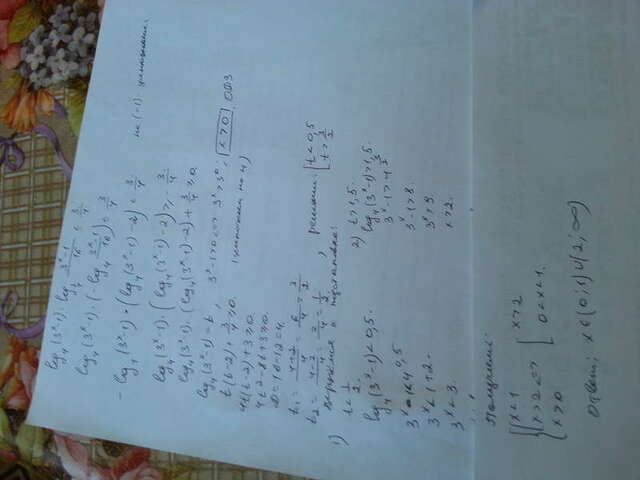 log₄(3ˣ-1)·log_¼ (3ˣ-1)/16 ≤ 3/4
log₄(3ˣ-1)·(-log₄ (3ˣ-1)/16) ≤ 3/4
-log₄(3ˣ-1)·(log₄(3ˣ-1)-2) ≤ 3/4 на (-1) умножаем:
log₄(3ˣ-1)·(log₄(3ˣ-1)-2) ≥ -3/4
log₄(3ˣ-1)·(log₄(3ˣ-1)-2)+3/4 ≥ 0.
log₄(3ˣ-1)=t, 3ˣ-1>0 <=> 3ˣ>3⁰, x>0. ОДЗ
t(t-2)+3/4 ≥ 0. (умножаем на 4)
4t(t-2)+3 ≥ 0.
4t²-8t+3 ≥ 0.
D=16-12=4.
t₁=(4+2)/4=6/4=3/2
t₂=(4-2)/4=2/4=1/2
решение: [t<0,5 t>3/2
1) t=1/2. 2) t>1,5.
log₄(3ˣ-1)=0,5. log₄(3ˣ-1)>1,5.
3ˣ-1<4^0,5 3ˣ-1>4^3/2
3ˣ<1+2. 3ˣ-1>8.
3ˣ<3. 3ˣ>9.
x>2.
Получим:
{[x<1 x>2 x>0 <=> [x>2 0<x<1.
Ответ: x∈(0;1)∪(2;∞)